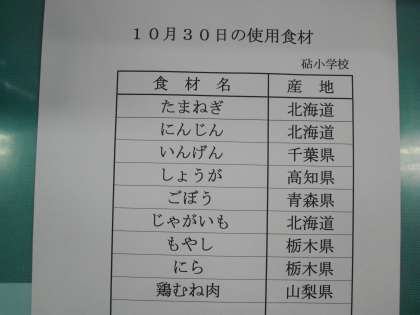 10月30日の使用食材
砧小学校
食材名 産地
たまねぎ 北海道
にんじん 北海道
いんげん 千葉県
しょうが 高知県
ごぼう 青森県
じゃがいも 北海道
もやし 栃木県
にら 栃木県
鶏むね肉 山梨県